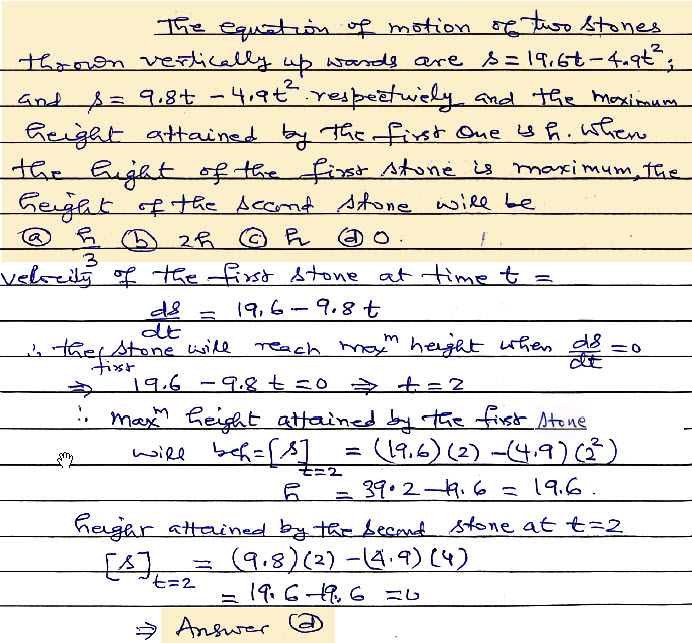 The equation of motion of two stones
thrown vertically up wards are s = 19.6t - 4.9t²;
and s = 9.8t - 4.9t² respectively and the maximum
height attained by the first one is h. when
the hight of the first stone is maximum, the
height of the second stone will be
(a) h/3 (b) 2h (c) h (d) 0.
velocity of the first stone at time t =
ds/dt = 19.6 - 9.8 t
∴ the first stone will reach maxᵐ height when ds/dt = 0
⇒ 19.6 - 9.8 t = 0 ⇒ t = 2
∴ maxᵐ height attained by the first stone
will be h = [s]t=2 = (19.6)(2) - (4.9)(2²)
h = 39.2 - 19.6 = 19.6.
height attained by the second stone at t = 2
[s]t=2 = (9.8)(2) - (4.9)(4)
= 19.6 - 19.6 = 0
⇒ Answer (d)